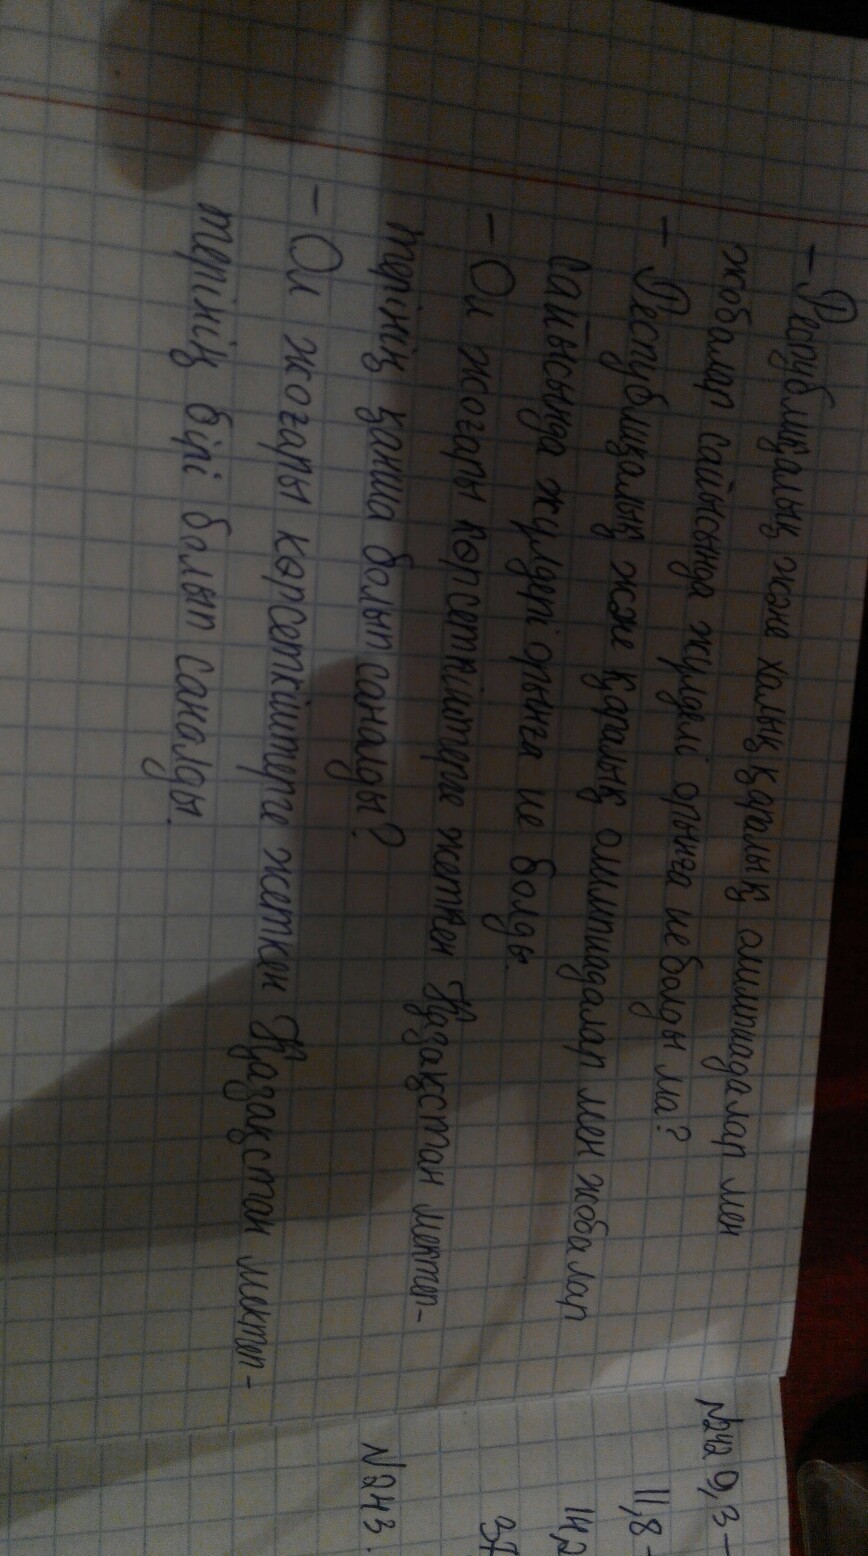 – Республикалық және халық қаралық олимпиадалар мен
жобалар сайысында жүлделі орынға ие болды ма?
– Республикалық жже қаралық олимпиадалар мен жобалар
сайысында жүлдері орынға ие болды.
– Ол жоғары көрсеткіштерге жеткен Қазақстан мектеп-
терінің қанша болып саналды?
– Ол жоғары көрсеткіштерге жеткен Қазақстан мектеп-
терінің бірі болып саналды.
№242 9,3 –
11,8 -
14,2
37
№243.